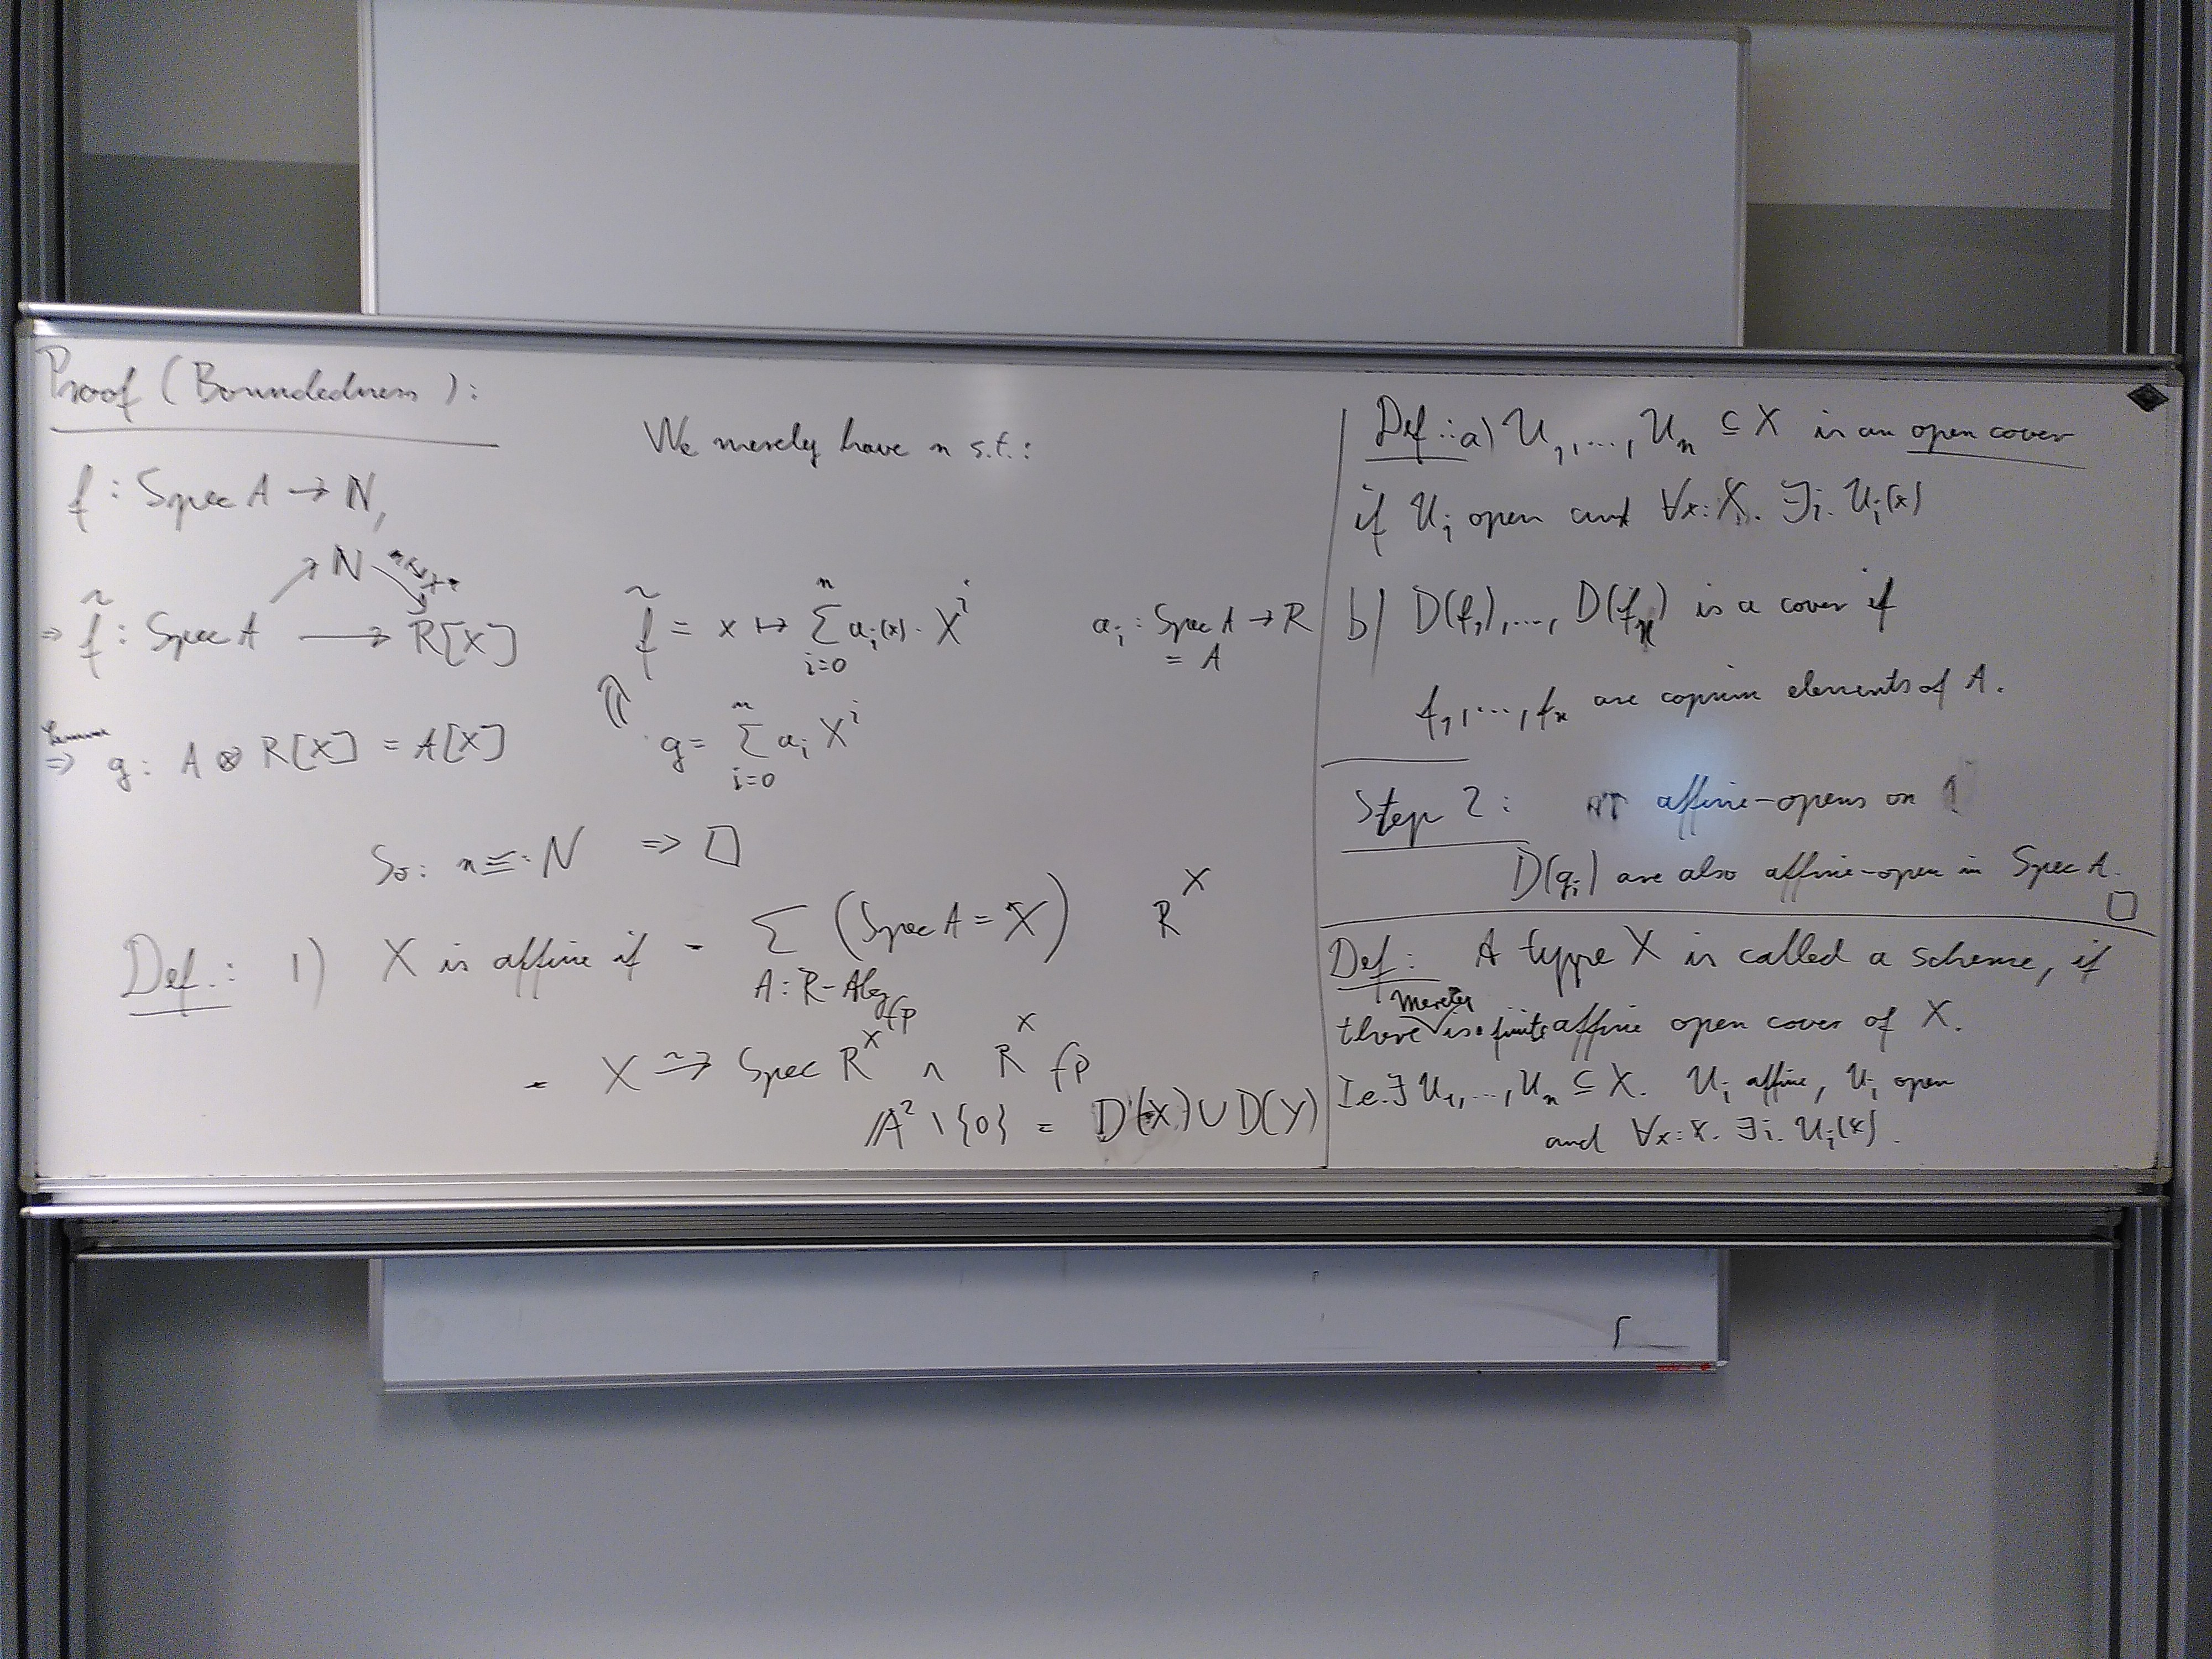 Proof (Boundedness):
We merely have n s.t.:
f : Spec A → ℕ,
↗ ℕ ↘
⇒ f̃ : Spec A → R[X]
f̃ = x ↦ ∑_{i=0}^{n} a_i(x) · X^i
a_i : Spec A → R
= A
Lemma
⇒ g : A ⊗ R[X] = A[X]
g = ∑_{i=0}^{n} a_i X^i
So: n ≤: N ⇒ □
Def.: 1) X is affine if - ∑_{A : R-Alg_{fp}} (Spec A = X) R^X
- X ⥲ Spec R^X ∧ R^X fp
𝔸² \ {0} = D(X) ∪ D(Y)
Def.: a) U_1, ..., U_n ⊆ X is an open cover
if U_i open and ∀x:X. ∃i. U_i(x)
b) D(f_1), ..., D(f_n) is a cover if
f_1, ..., f_n are coprime elements of A.
Step 2: affine-opens on
D(g_i) are also affine-open in Spec A.
□
Def: A type X is called a scheme, if
there merely is finite affine open cover of X.
I.e. ∃ U_1, ..., U_n ⊆ X. U_i affine, U_i open
and ∀x:X. ∃i. U_i(x).